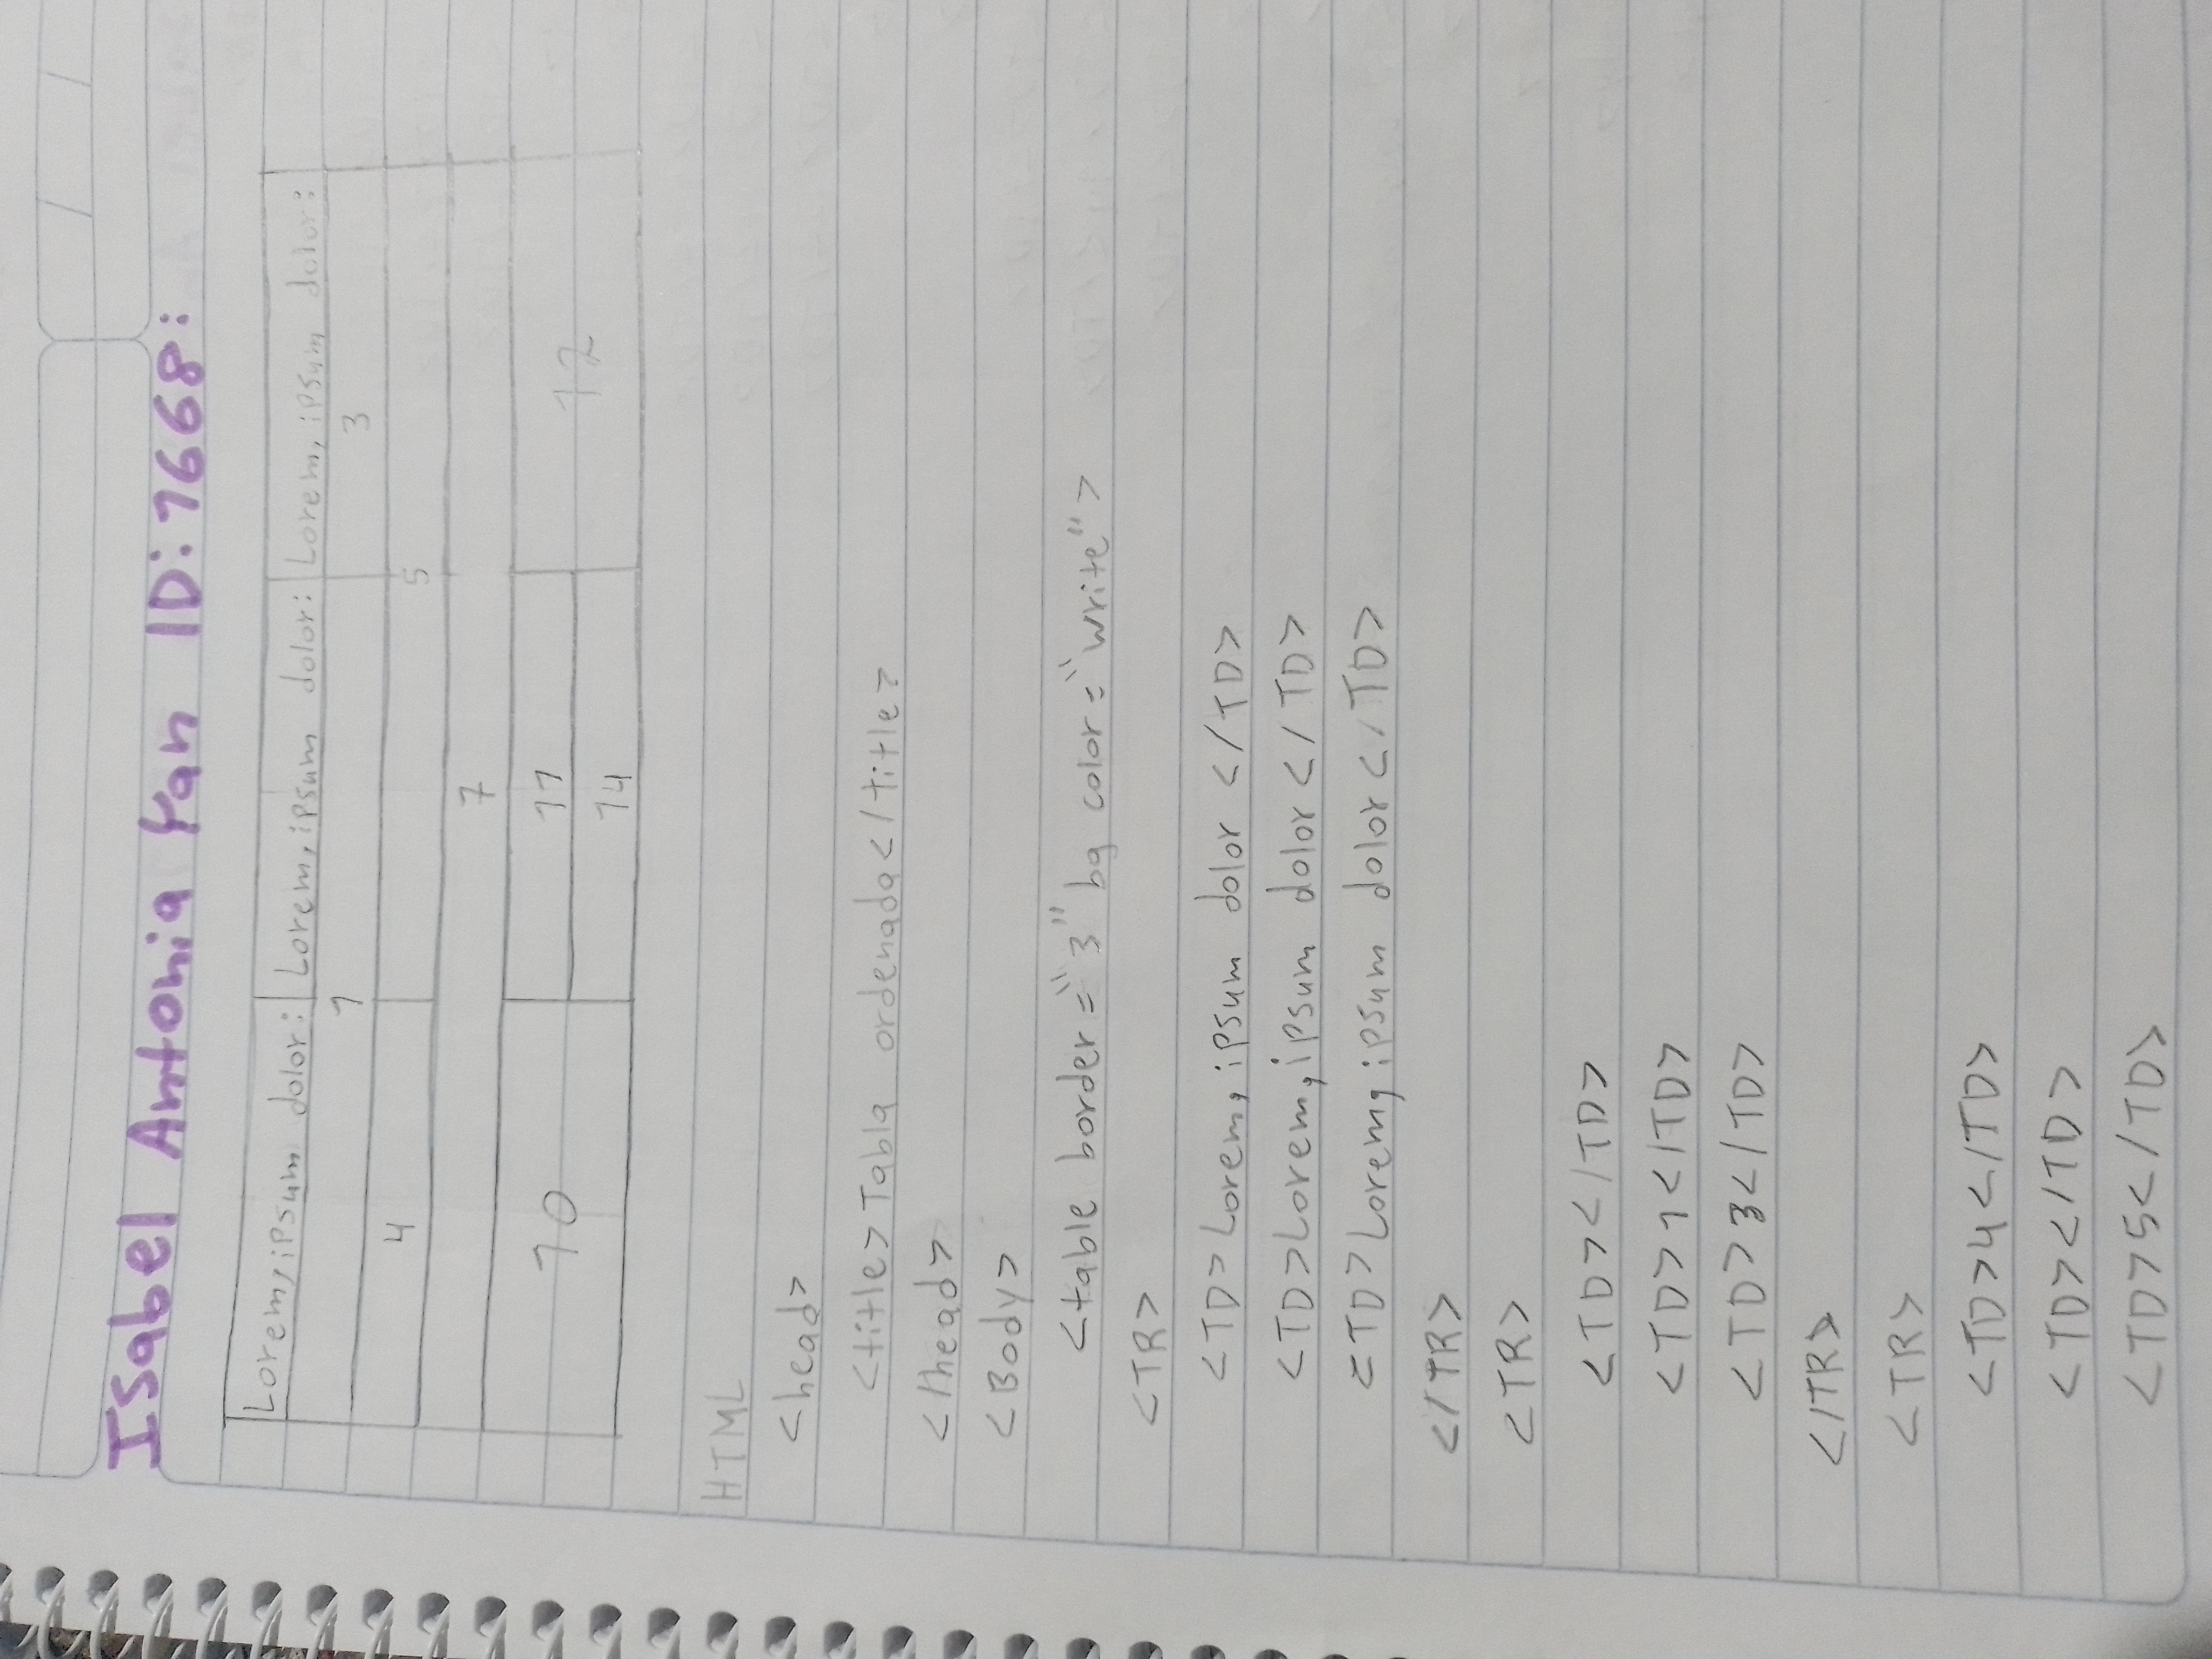 Isabel Amtonia Yan ID: 1668:
Lorem, ipsum dolor: Lorem, ipsum dolor: Lorem, ipsum dolor:
1 3
4 5
7
10 11 12
14
HTML
<head>
<title>Tabla ordenada</title>
</head>
<Body>
<table border="3" bg color="write">
<TR>
<TD>Lorem, ipsum dolor </TD>
<TD>Lorem, ipsum dolor </TD>
<TD>Lorem, ipsum dolor </TD>
</TR>
<TR>
<TD></TD>
<TD>1</TD>
<TD>3</TD>
</TR>
<TR>
<TD>4</TD>
<TD></TD>
<TD>5</TD>